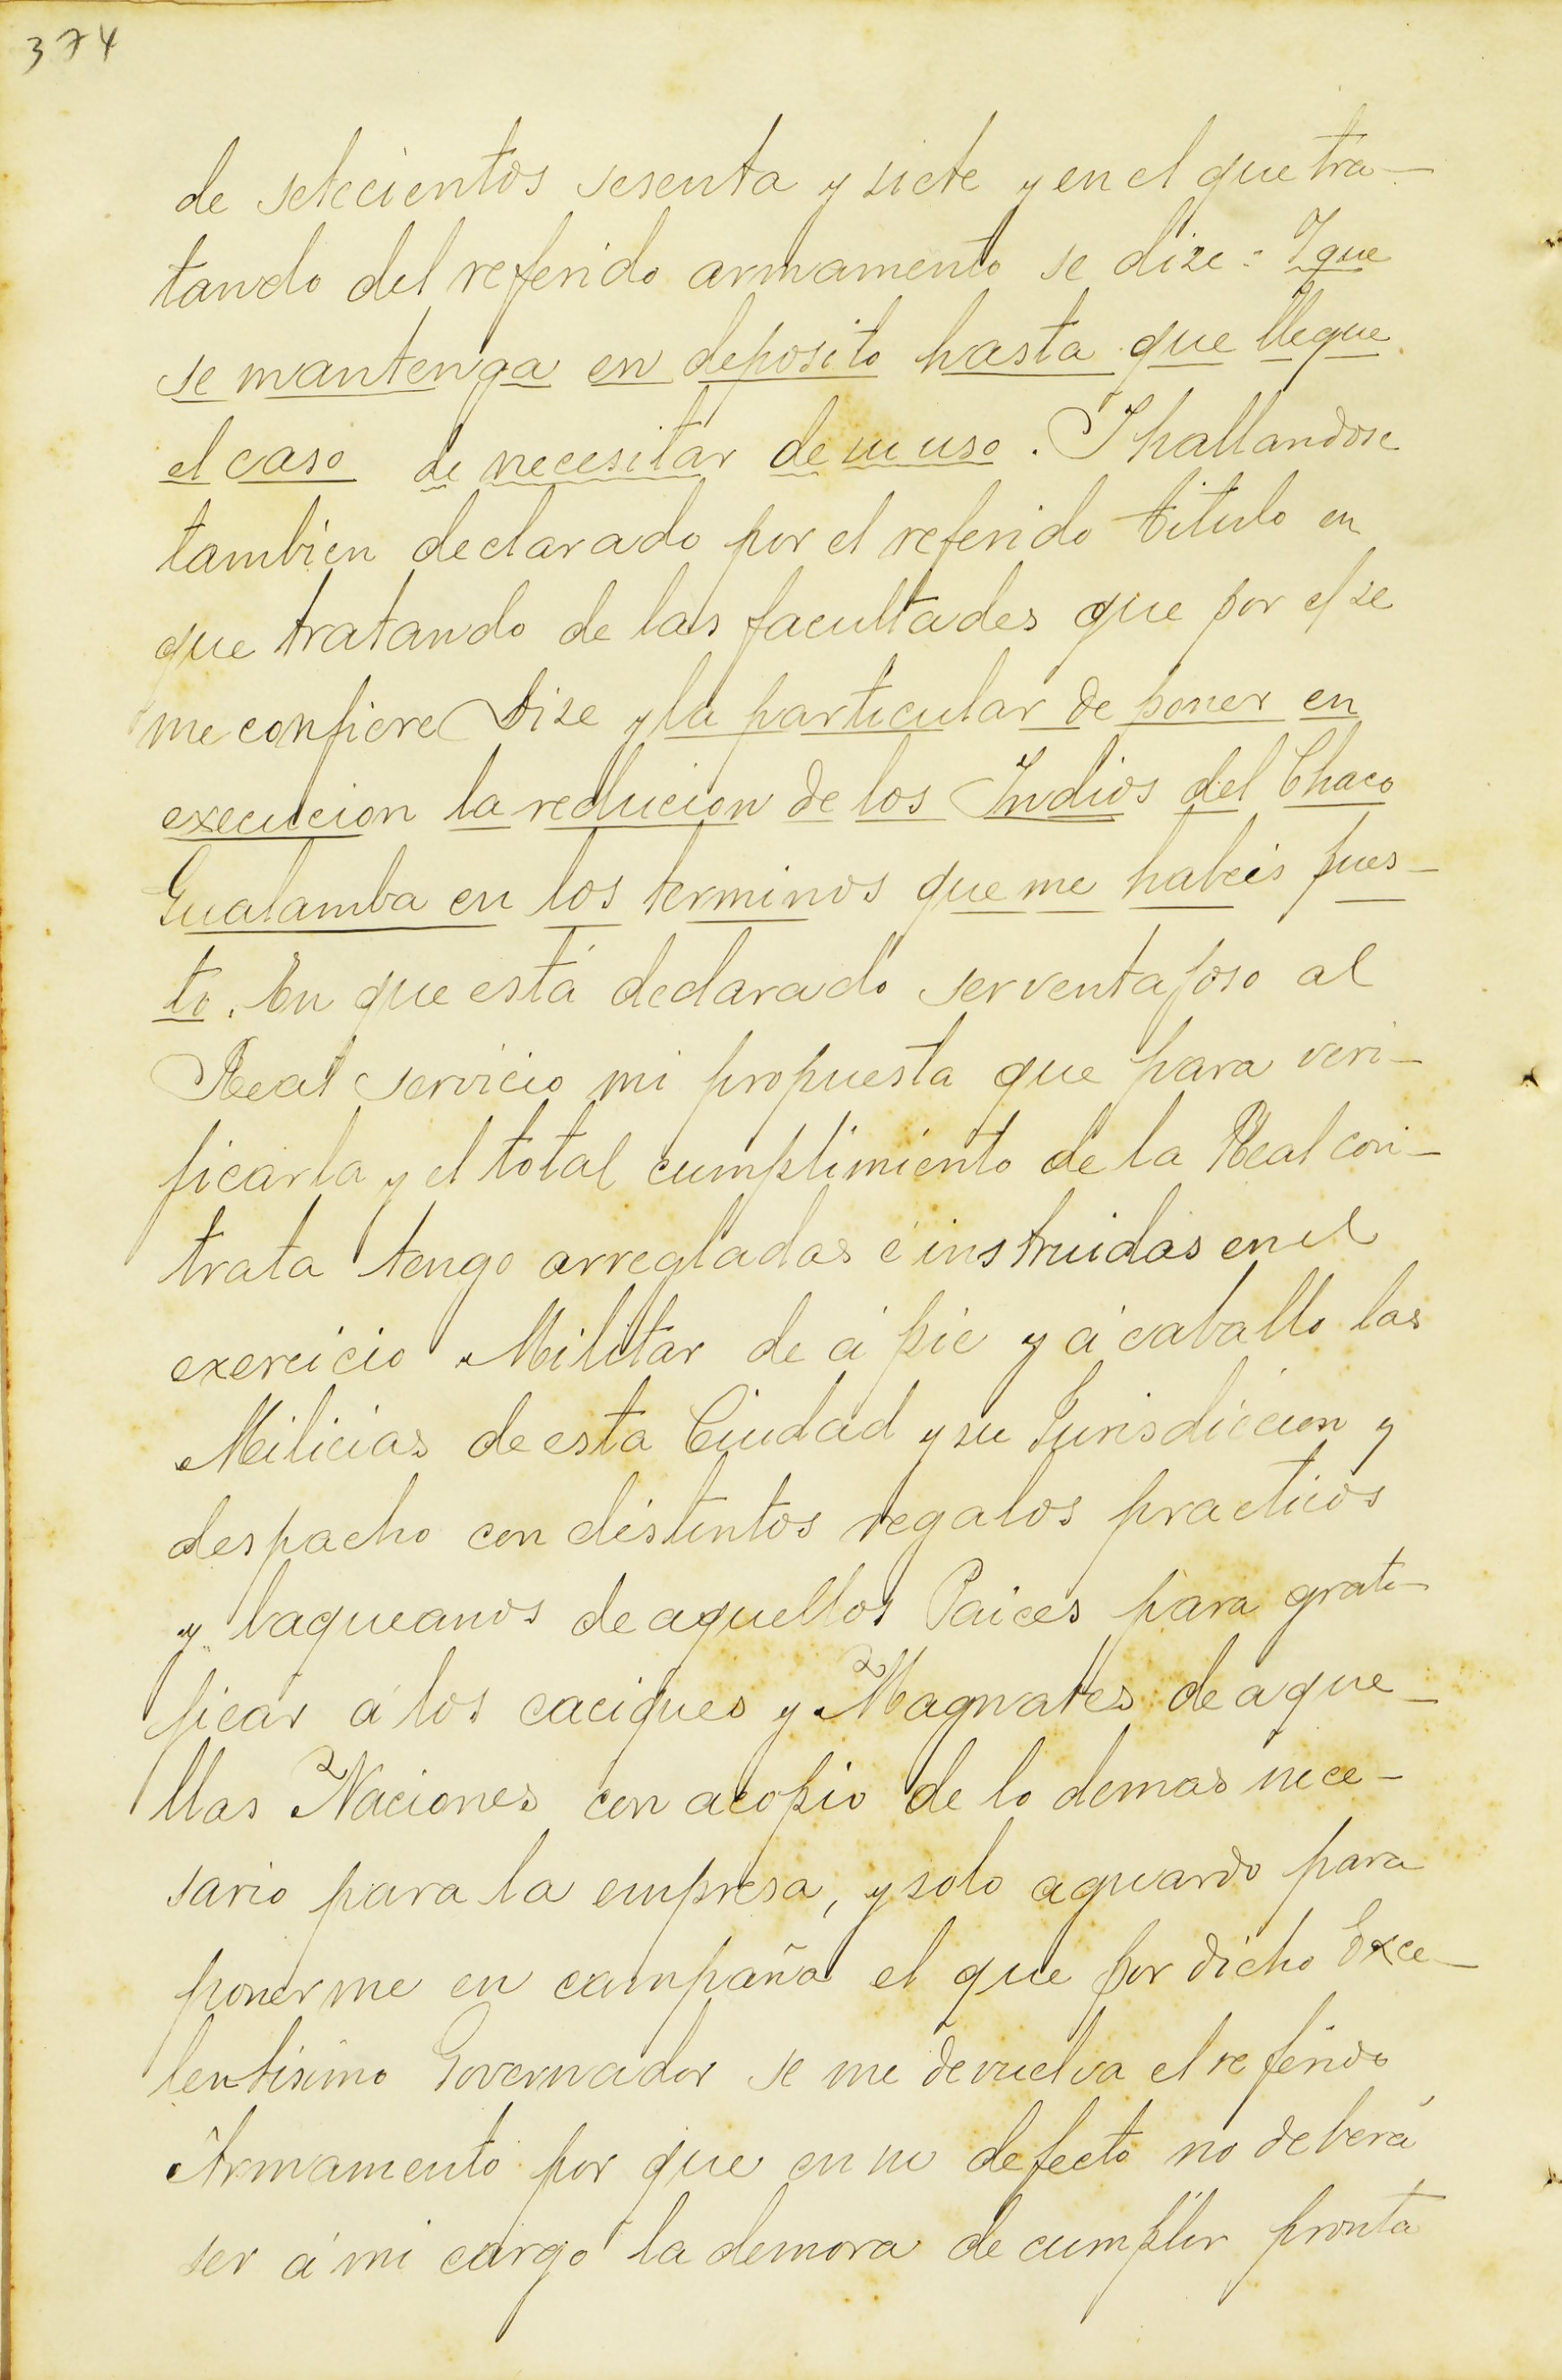 374
de setecientos sesenta y siete y en el que tra-
tando del referido armamento se dize: I que
se mantenga en deposito hasta que llegue
el caso de necesitar de su uso. I hallandose
tambien declarado por el referido titulo en
que tratando de las facultades que por el se
me confiere Dize y la particular de poner en
execucion la reducion de los Indios del Chaco
Gualamba en los terminos que me habeis pues-
to. En que está declarado ser ventajoso al
Real servicio mi propuesta que para veri-
ficarla y el total cumplimiento de la Real con-
trata tengo arregladas é instruidas en el
exercicio Militar de á pie y á caballo las
Milicias de esta Ciudad y su Jurisdiccion y
despacho con distintos regalos practicos
y baqueanos de aquellos Paices para grati-
ficar á los caciques y Magnates de aque-
llas Naciones con acopio de lo demas nece-
sario para la empresa, y solo aguardo para
ponerme en campaña el que por dicho Exce-
lentisimo Governador se me devuelva el referido
Armamento por que en su defecto no deberá
ser á mi cargo la demora de cumplir pronta